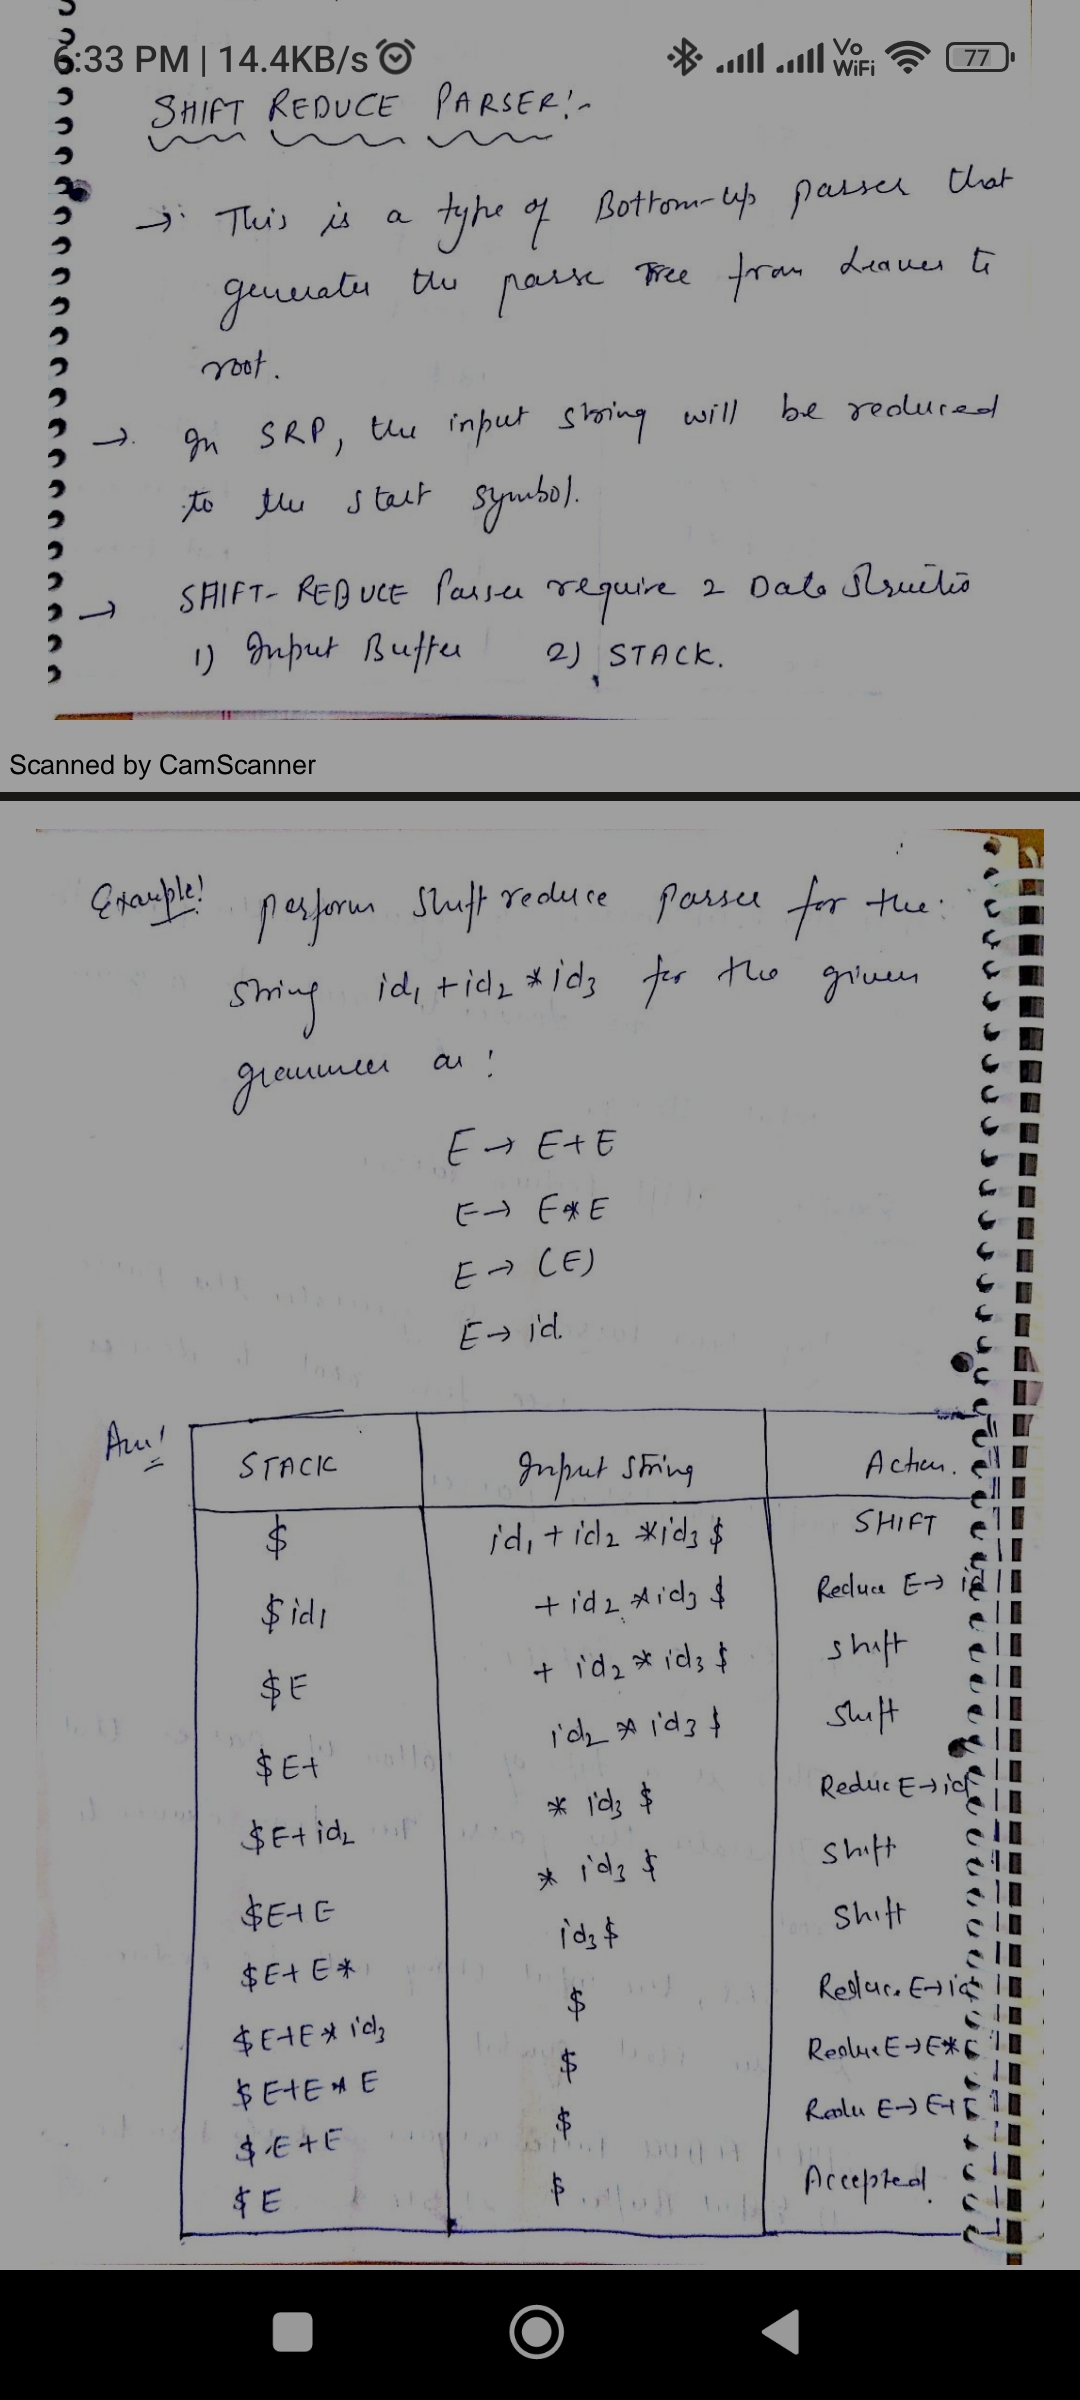 6:33 PM | 14.4KB/s Vo WiFi 77
SHIFT REDUCE PARSER:-
→ This is a type of Bottom-Up parser that
generates the parse Tree from Leaves to
root.
→ In SRP, the input string will be reduced
to the start symbol.
→ SHIFT-REDUCE Parser require 2 Data Structio
1) Input Buffer 2) STACK.
Scanned by CamScanner
Example! perform Shift reduce parser for the
string id₁ + id₂ * id₃ for the given
grammer as :
E → E+E
E → E*E
E → (E)
E → id.
Ans! STACK Input string Action.
$ id₁ + id₂ * id₃ $ SHIFT
$ id₁ + id₂ * id₃ $ Reduce E → id
$ E + id₂ * id₃ $ shift
$ E+ id₂ * id₃ $ Shift
$ E+ id₂ * id₃ $ Reduc E → id
$ E+E * id₃ $ Shift
$ E+E* id₃ $ Shift
$ E+E* id₃ $ Reduce E → id
$ E+E*E $ Reduce E → E*E
$ E+E $ Redu E → E+E
$ E $ Accepted.